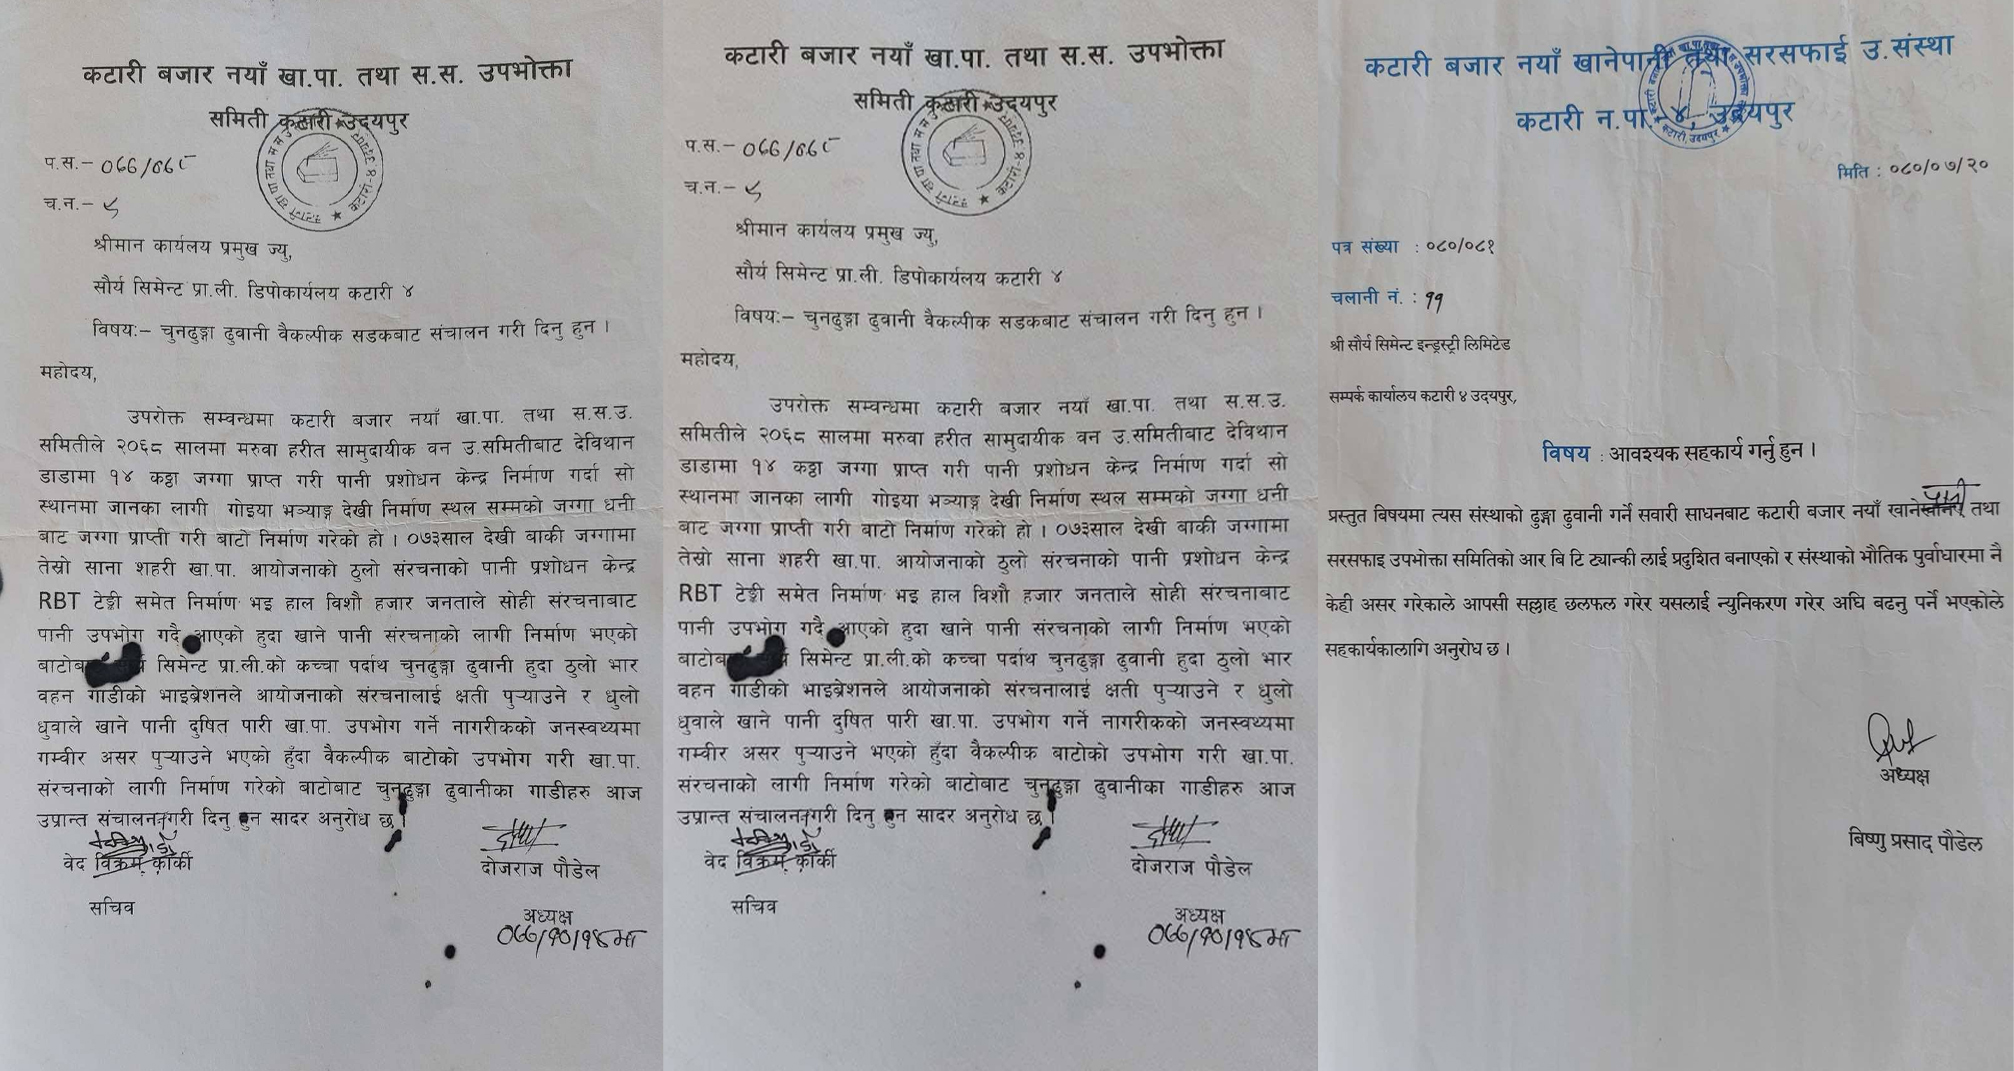 कटारी बजार नयाँ खा.पा. तथा स.स. उपभोक्ता
समिती कटारी उदयपुर
प.स.– ०७७/७७८
च.न.– ५
श्रीमान कार्यलय प्रमुख ज्यु,
सौर्य सिमेन्ट प्रा.ली. डिपोकार्यलय कटारी ४
विषयः– चुनढुङ्गा ढुवानी वैकल्पीक सडकबाट संचालन गरी दिनु हुन ।
महोदय,
उपरोक्त सम्वन्धमा कटारी बजार नयाँ खा.पा. तथा स.स.उ.
समितीले २०६८ सालमा मरुवा हरीत सामुदायीक वन उ.समितीबाट देविथान
डाडामा १४ कठ्ठा जग्गा प्राप्त गरी पानी प्रशोधन केन्द्र निर्माण गर्दा सो
स्थानमा जानका लागी गोइया भञ्याङ्ग देखी निर्माण स्थल सम्मको जग्गा धनी
बाट जग्गा प्राप्ती गरी बाटो निर्माण गरेको हो । ०७३साल देखी बाकी जग्गामा
तेस्रो साना शहरी खा.पा. आयोजनाको ठुलो संरचनाको पानी प्रशोधन केन्द्र
RBT टेङ्की समेत निर्माण भइ हाल विशौ हजार जनताले सोही संरचनाबाट
पानी उपभोग गर्दै आएको हुदा खाने पानी संरचनाको लागी निर्माण भएको
सिमेन्ट प्रा.ली.को कच्चा पर्दाथ चुनढुङ्गा ढुवानी हुदा ठुलो भार
वहन गाडीको भाइब्रेशनले आयोजनाको संरचनालाई क्षती पुऱ्याउने र धुलो
धुवाले खाने पानी दुषित पारी खा.पा. उपभोग गर्ने नागरीकको जनस्वथ्यमा
गम्वीर असर पुऱ्याउने भएको हुँदा वैकल्पीक बाटोको उपभोग गरी खा.पा.
संरचनाको लागी निर्माण गरेको बाटोबाट चुनढुङ्गा ढुवानीका गाडीहरु आज
उप्रान्त संचालन नगरी दिनु हुन सादर अनुरोध छ ।
वेद विक्रम कार्की
दोजराज पौडेल
सचिव
अध्यक्ष
०७७/१०/१४मा
कटारी बजार नयाँ खा.पा. तथा स.स. उपभोक्ता
समिती कटारी उदयपुर
प.स.– ०७७/७७८
च.न.– ५
श्रीमान कार्यलय प्रमुख ज्यु,
सौर्य सिमेन्ट प्रा.ली. डिपोकार्यलय कटारी ४
विषयः– चुनढुङ्गा ढुवानी वैकल्पीक सडकबाट संचालन गरी दिनु हुन ।
महोदय,
उपरोक्त सम्वन्धमा कटारी बजार नयाँ खा.पा. तथा स.स.उ.
समितीले २०६८ सालमा मरुवा हरीत सामुदायीक वन उ.समितीबाट देविथान
डाडामा १४ कठ्ठा जग्गा प्राप्त गरी पानी प्रशोधन केन्द्र निर्माण गर्दा सो
स्थानमा जानका लागी गोइया भञ्याङ्ग देखी निर्माण स्थल सम्मको जग्गा धनी
बाट जग्गा प्राप्ती गरी बाटो निर्माण गरेको हो । ०७३साल देखी बाकी जग्गामा
तेस्रो साना शहरी खा.पा. आयोजनाको ठुलो संरचनाको पानी प्रशोधन केन्द्र
RBT टेङ्की समेत निर्माण भइ हाल विशौ हजार जनताले सोही संरचनाबाट
पानी उपभोग गर्दै आएको हुदा खाने पानी संरचनाको लागी निर्माण भएको
सिमेन्ट प्रा.ली.को कच्चा पर्दाथ चुनढुङ्गा ढुवानी हुदा ठुलो भार
वहन गाडीको भाइब्रेशनले आयोजनाको संरचनालाई क्षती पुऱ्याउने र धुलो
धुवाले खाने पानी दुषित पारी खा.पा. उपभोग गर्ने नागरीकको जनस्वथ्यमा
गम्वीर असर पुऱ्याउने भएको हुँदा वैकल्पीक बाटोको उपभोग गरी खा.पा.
संरचनाको लागी निर्माण गरेको बाटोबाट चुनढुङ्गा ढुवानीका गाडीहरु आज
उप्रान्त संचालन नगरी दिनु हुन सादर अनुरोध छ ।
वेद विक्रम कार्की
दोजराज पौडेल
सचिव
अध्यक्ष
०७७/१०/१४मा
कटारी बजार नयाँ खानेपानी तथा सरसफाई उ.संस्था
कटारी न.पा.-४, उदयपुर
मिति : ०८०/०७/२०
पत्र संख्या : ०८०/०८१
चलानी नं. : ११
श्री सौर्य सिमेन्ट इन्ड्स्ट्री लिमिटेड
सम्पर्क कार्यालय कटारी ४ उदयपुर,
विषय : आवश्यक सहकार्य गर्नु हुन ।
प्रस्तुत विषयमा त्यस संस्थाको ढुङ्गा ढुवानी गर्ने सवारी साधनबाट कटारी बजार नयाँ खानेपानी तथा
सरसफाइ उपभोक्ता समितिको आर बि टि ट्यान्की लाई प्रदुशित बनाएको र संस्थाको भौतिक पुर्वाधारमा नै
केही असर गरेकाले आपसी सल्लाह छलफल गरेर यसलाई न्युनिकरण गरेर अघि बढनु पर्ने भएकोले
सहकार्यकालागि अनुरोध छ ।
अध्यक्ष
बिष्णु प्रसाद पौडेल